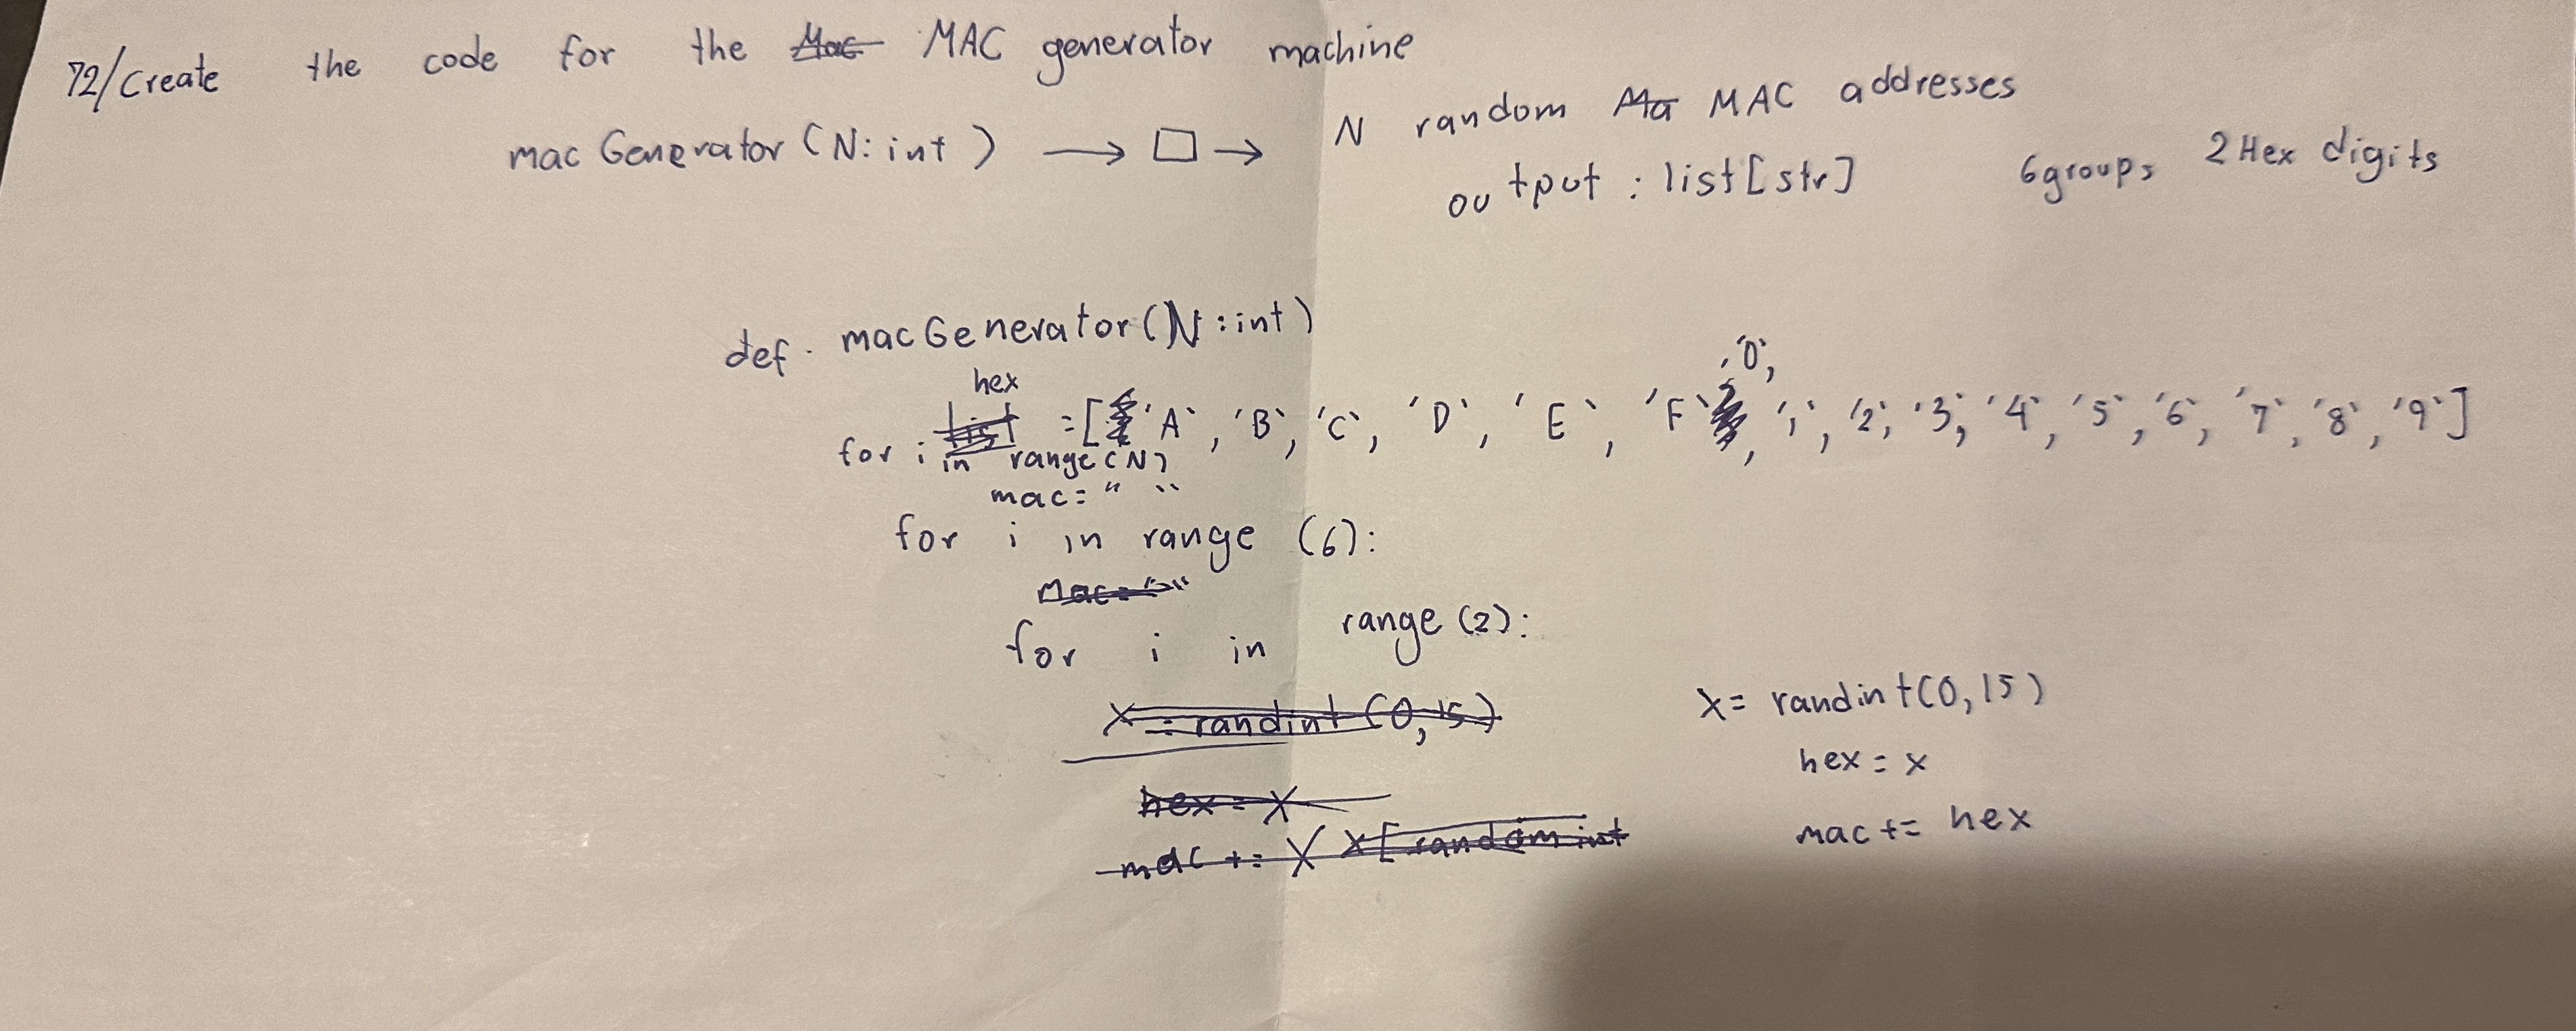 72/Create the code for the Mac MAC generator machine
mac Generator (N: int) → □ → N random Ma MAC addresses
output : list[str] 6groups 2 Hex digits
def macGenerator(N:int)
hex
list = ['A', 'B', 'C', 'D', 'E', 'F', '0', '1', '2', '3', '4', '5', '6', '7', '8', '9']
for i in range(N)
mac= " "
for i in range (6):
mac=" "
for i in range (2):
X = randint (0,15)
hex = X
mac += X X[randomint
X= randint(0,15)
hex = x
mac += hex